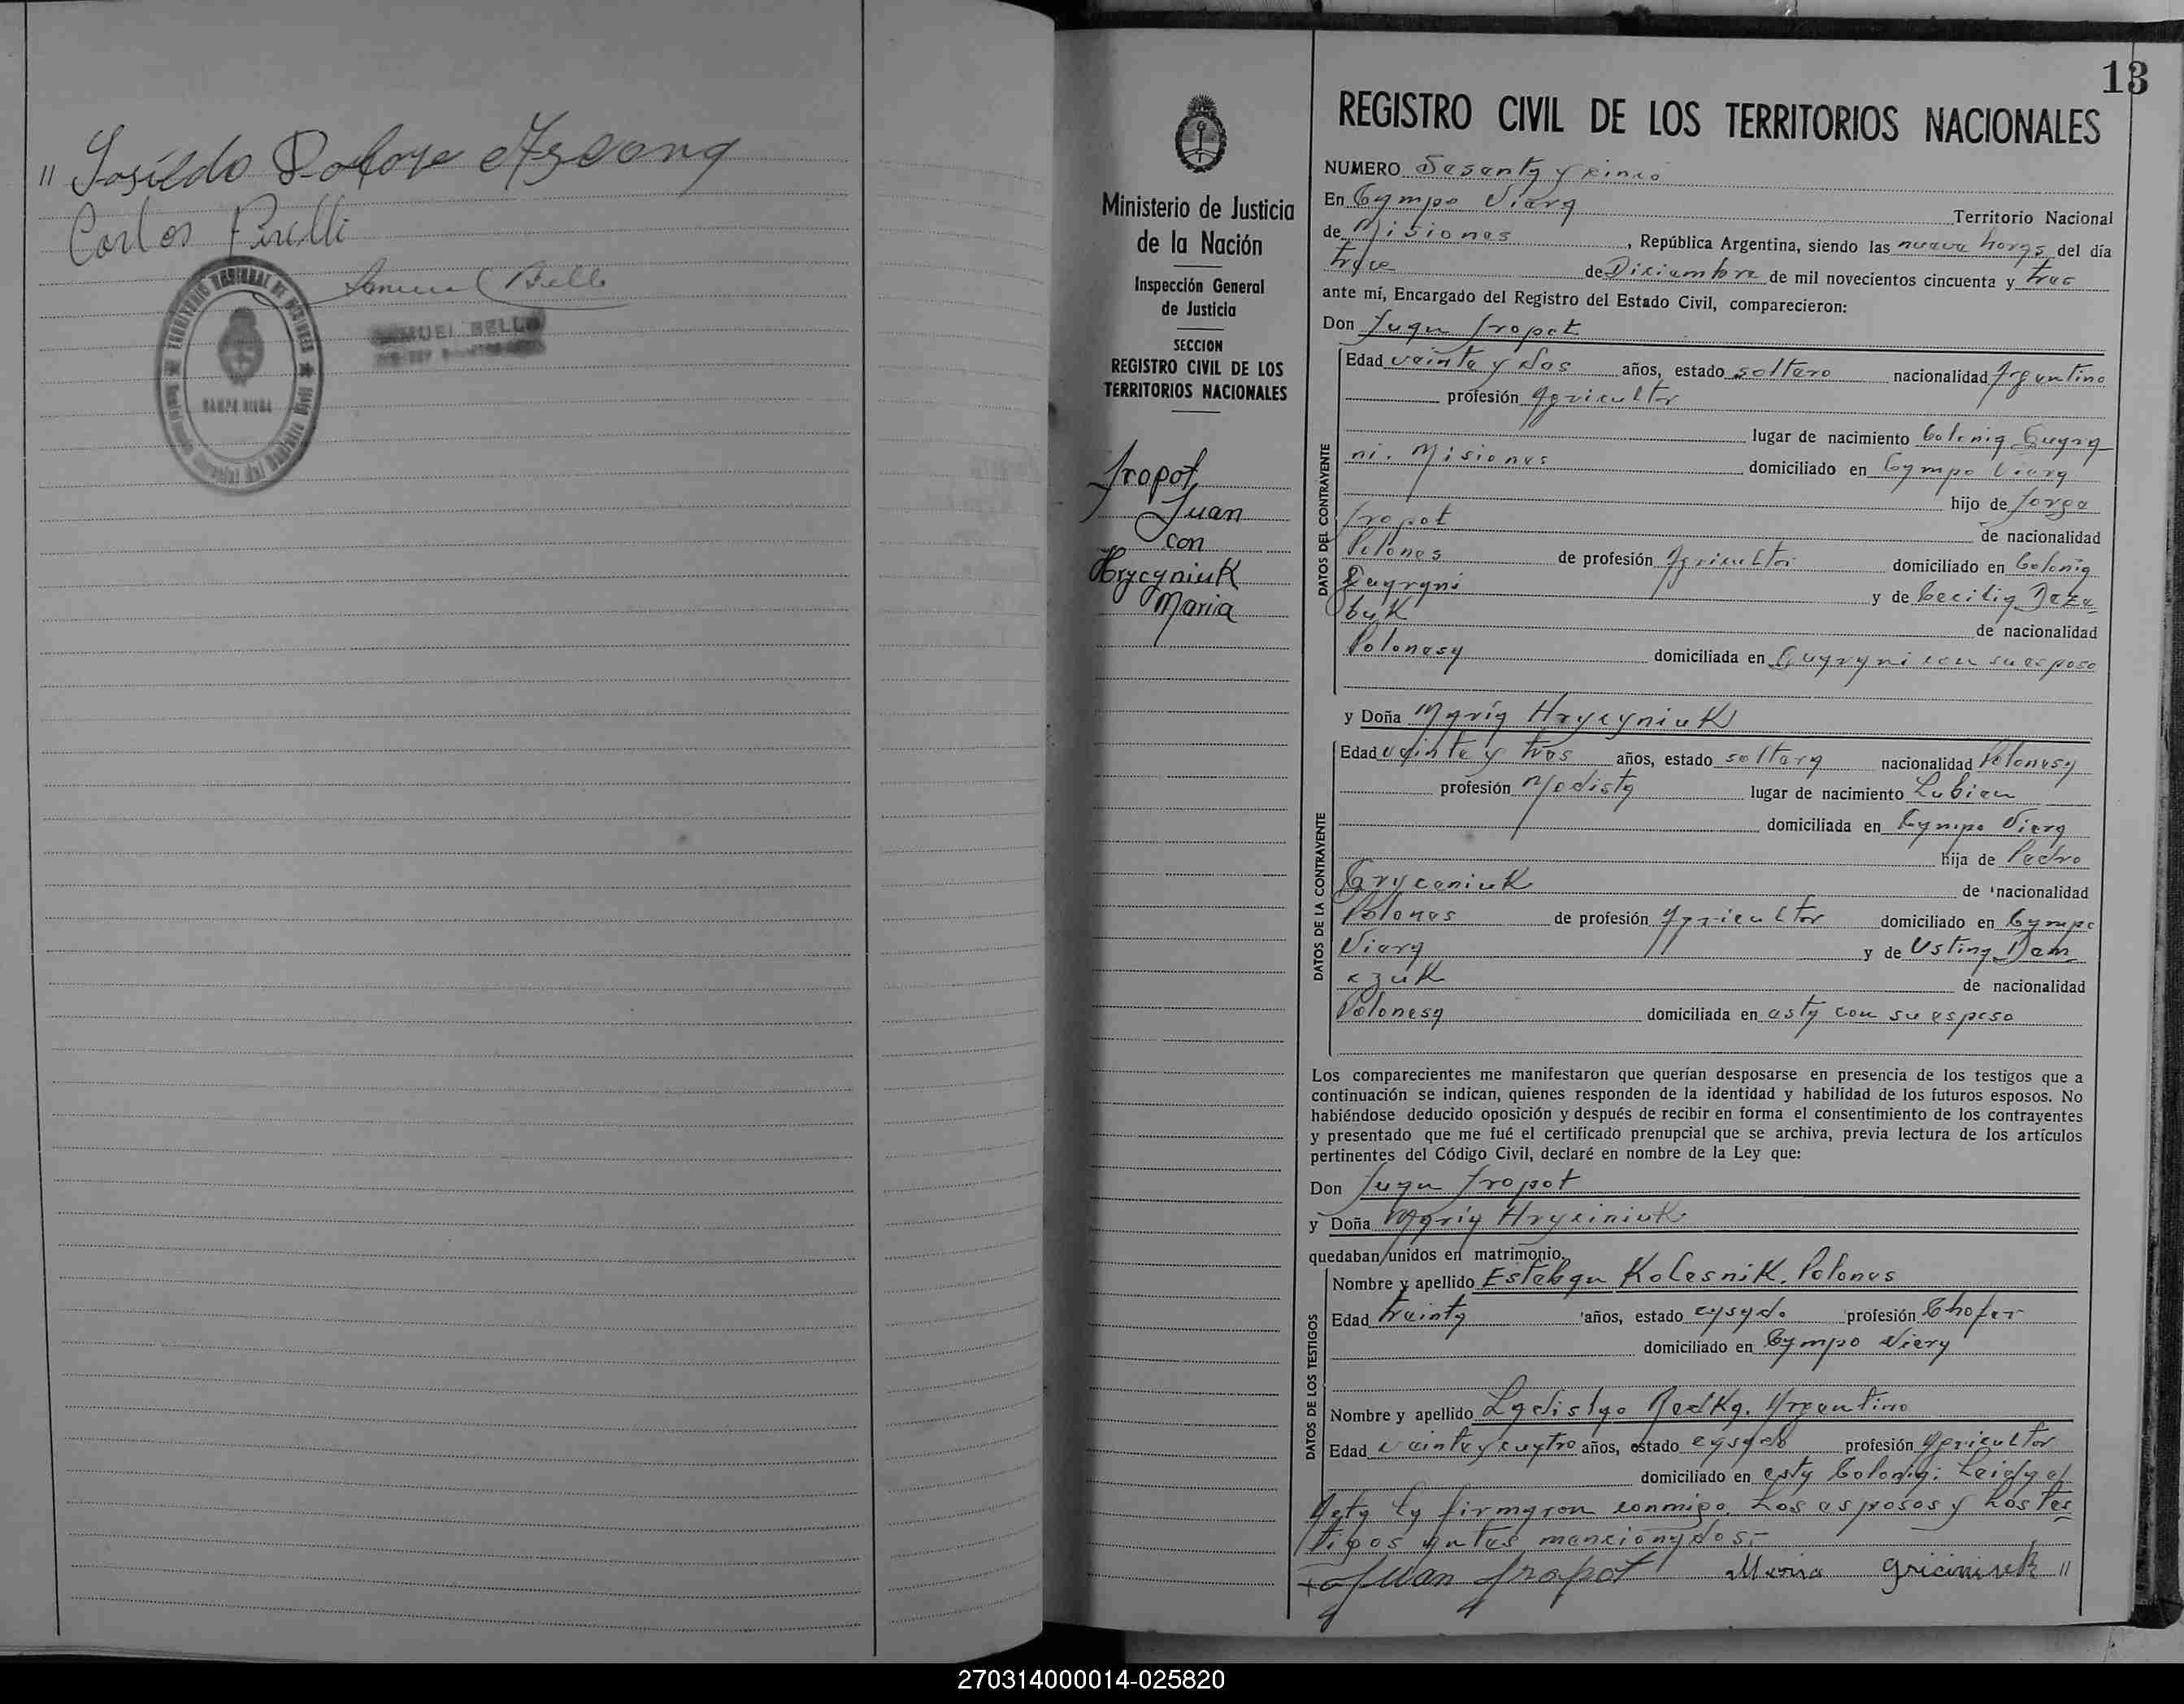 Carlos Pirelli
SAMUEL BELLO
13
REGISTRO CIVIL DE LOS TERRITORIOS NACIONALES
NUMERO Sesenta y cinco
En Campo Viera Territorio Nacional
de Misiones, República Argentina, siendo las nueve horas del día
trece de Diciembre de mil novecientos cincuenta y tres
ante mí, Encargado del Registro del Estado Civil, comparecieron:
Don Juan Jropot
Edad veinte y dos años, estado soltero nacionalidad Argentino
profesión Agricultor
lugar de nacimiento Colonia Guara
ni. Misiones domiciliado en Campo Viera
hijo de Jorge
Jropot de nacionalidad
Polones de profesión Agricultor domiciliado en Colonia
Guarani y de Cecilia
buk de nacionalidad
Polonesa domiciliada en Guarani con su esposo
y Doña María Hrycyniuk
Edad veinte y tres años, estado soltera nacionalidad Polonesa
profesión Modista lugar de nacimiento Lubien
domiciliada en Campo Viera
hija de Pedro
Gryceniuk de nacionalidad
Polones de profesión Agricultor domiciliado en Campo
Viera y de Ustina Dem
czuk de nacionalidad
Polonesa domiciliada en esta con su esposo
Los comparecientes me manifestaron que querían desposarse en presencia de los testigos que a
continuación se indican, quienes responden de la identidad y habilidad de los futuros esposos. No
habiéndose deducido oposición y después de recibir en forma el consentimiento de los contrayentes
y presentado que me fué el certificado prenupcial que se archiva, previa lectura de los artículos
pertinentes del Código Civil, declaré en nombre de la Ley que:
Don Juan Jropot
y Doña María Hryciniuk
quedaban unidos en matrimonio.
Nombre y apellido Esteban Kolesnik. Polones
Edad treinta años, estado casado profesión Chofer
domiciliado en Campo Viera
Nombre y apellido Ladislao Redka. Argentino
Edad veinte y cuatro años, estado casado profesión Agricultor
domiciliado en esta Colonia: Leida el
Acta la firmaron conmigo. Los esposos y Los tes
tigos antes mencionados.-
Juan Jropot Maria Griciniuk "
Ministerio de Justicia
de la Nación
Inspección General
de Justicia
SECCION
REGISTRO CIVIL DE LOS
TERRITORIOS NACIONALES
Jropot
Juan
con
Hrycyniuk
Maria
DATOS DEL CONTRAYENTE
DATOS DE LA CONTRAYENTE
DATOS DE LOS TESTIGOS
270314000014-025820